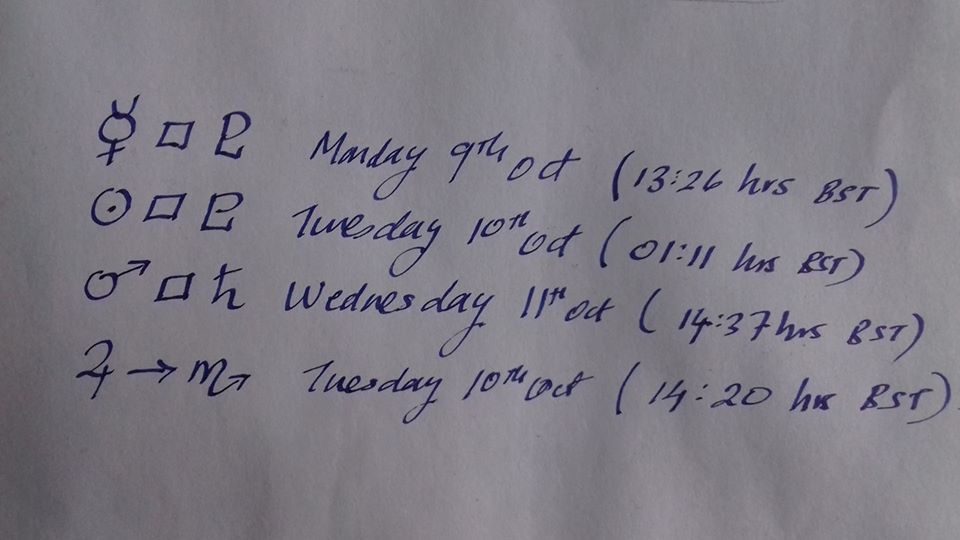 ☿ □ ♇ Monday 9th Oct (13:26 hrs BST)
☉ □ ♇ Tuesday 10th Oct (01:11 hrs BST)
♂ □ ♄ Wednesday 11th Oct (14:37 hrs BST)
♃ → ♏ Tuesday 10th Oct (14:20 hrs BST)